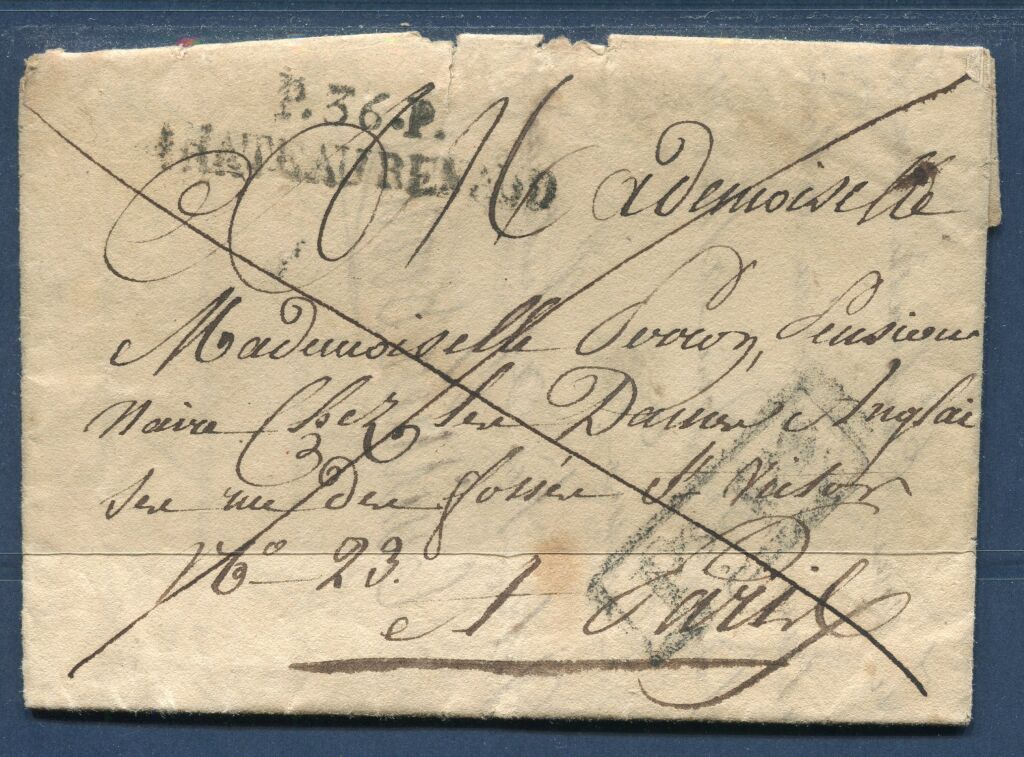 P.36.P.
CHATEAURENAUD
Mademoiselle
Mademoiselle Perron, Pension
naire Chez les Dames Anglai
ses rue des fossés St Victor
No 23.
A Paris